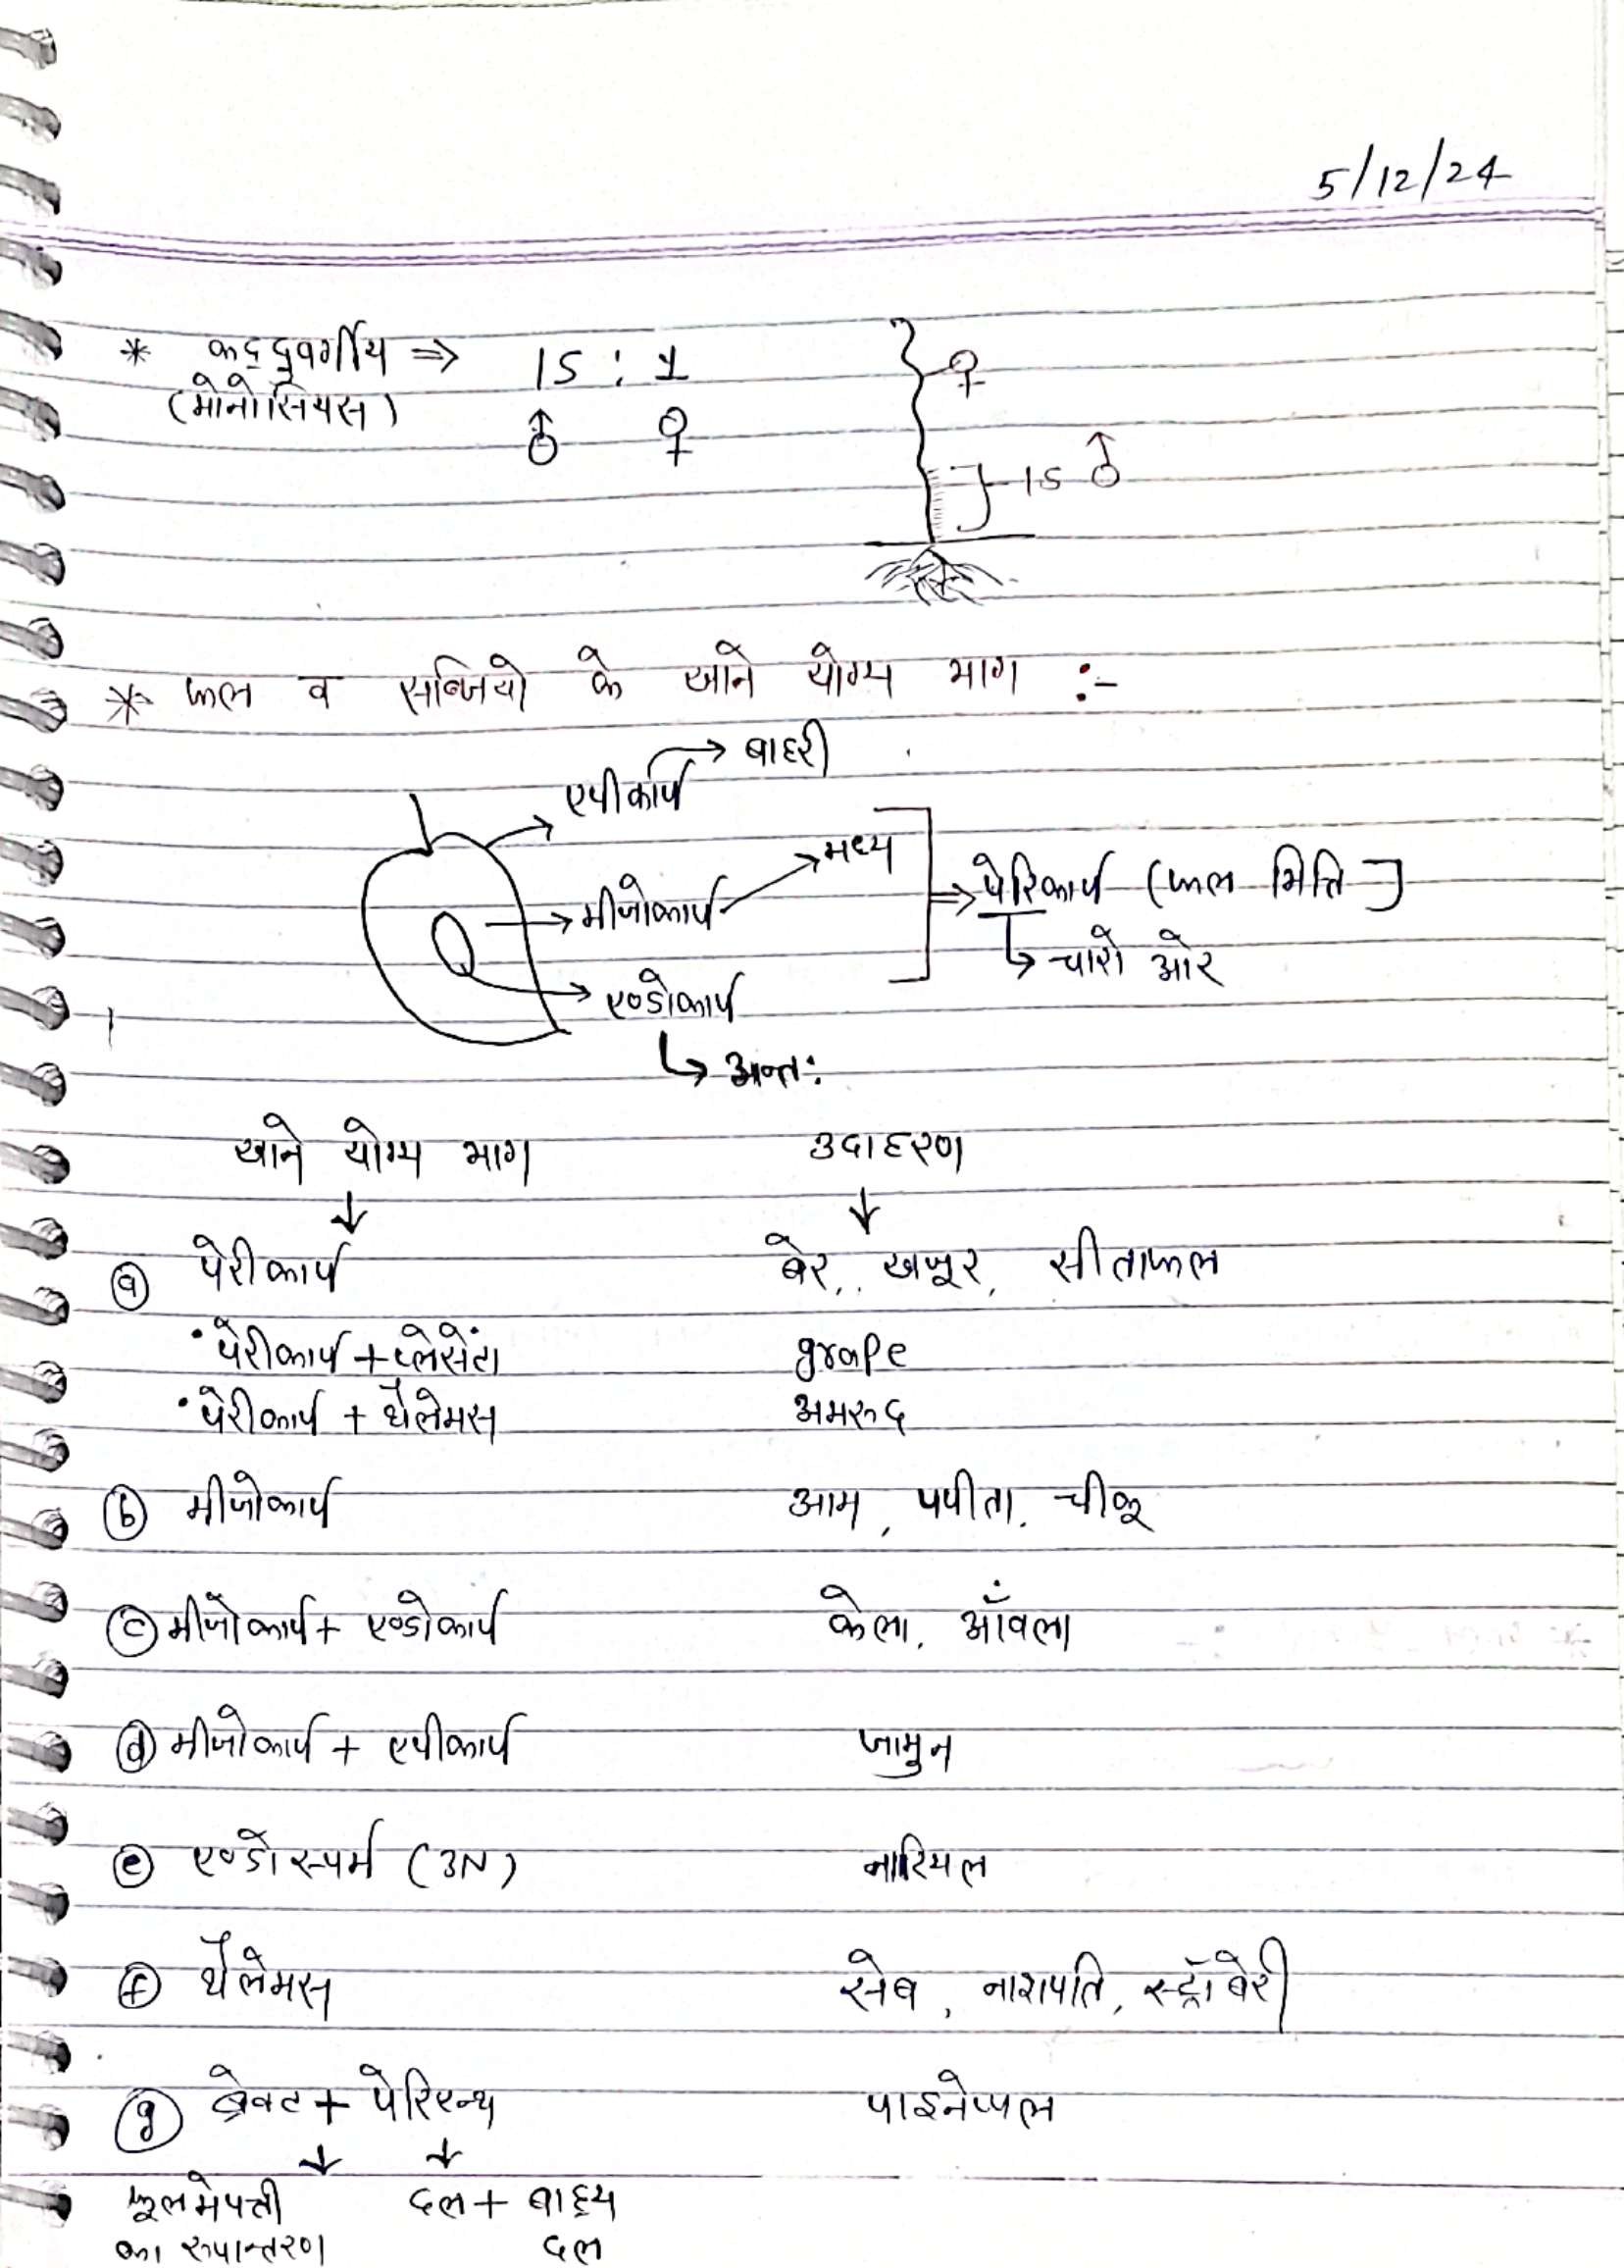 5/12/24
* कद्दूवर्गीय ⇒ 15 : 1
(मोनोसियस) ♂ ♀
♀
15 ♂
* फल व सब्जियो के खाने योग्य भाग :-
एपीकार्प → बाहरी
मीजोकार्प → मध्य
⇒ पेरिकार्प (फल भित्ति]
↳ चारो ओर
एण्डोकार्प
↳ अन्तः
खाने योग्य भाग उदाहरण
↓ ↓
ⓐ पेरीकार्प बेर, खजूर, सीताफल
• पेरीकार्प + प्लेसेंटा grape
• पेरीकार्प + थैलेमस अमरूद
ⓑ मीजोकार्प आम, पपीता, चीकू
ⓒ मीजोकार्प + एण्डोकार्प केला, आँवला
ⓓ मीजोकार्प + एपीकार्प जामुन
ⓔ एण्डोस्पर्म (3N) नारियल
ⓕ थैलेमस सेब, नाशपति, स्ट्रॉबेरी
ⓖ ब्रेक्ट + पेरिएन्थ पाइनेप्पल
↓ ↓
फूल मे पत्ती दल + बाह्य
का रूपान्तरण दल